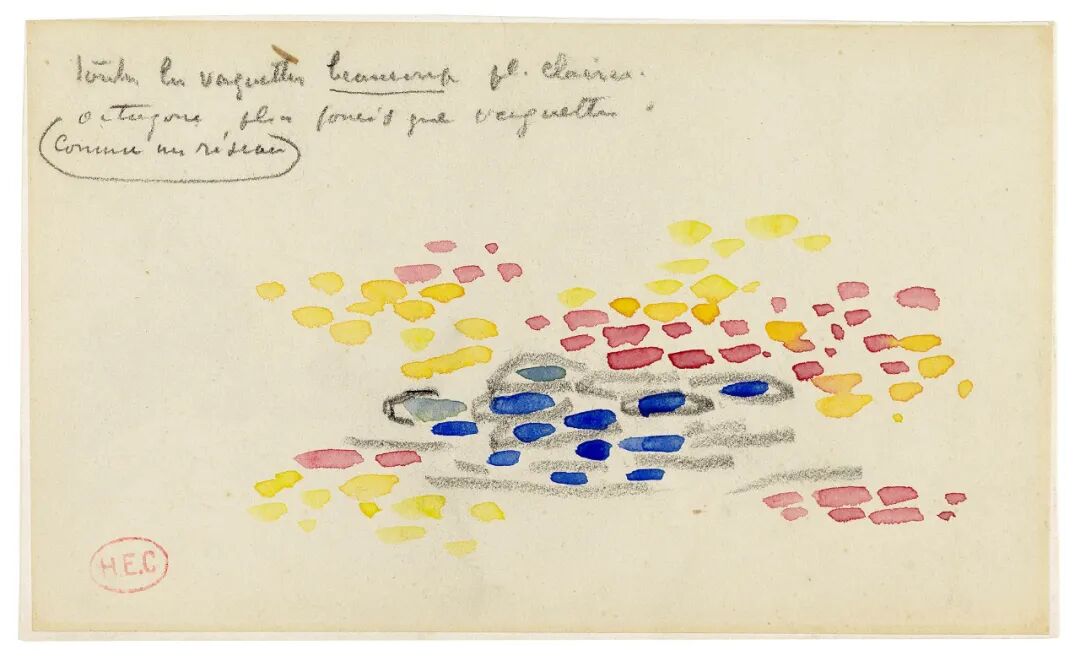 toutes les vaguettes beaucoup pl. claires.
octogone plus foncés que vaguettes.
Comme un réseau
H.E.C